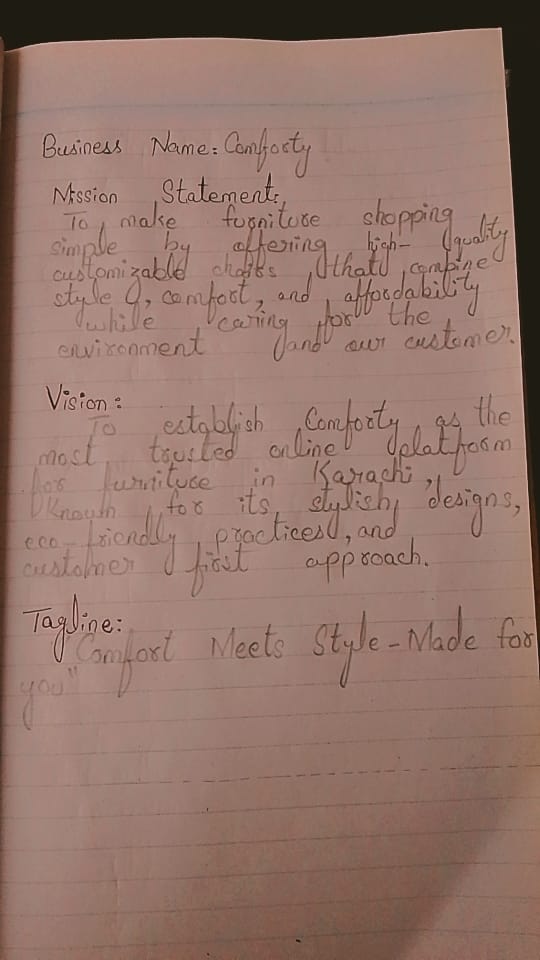 Business Name: Comforty
Mission Statement:
To make furniture shopping
simple by offering high-quality
customizable chairs that combine
style, comfort, and affordability
while caring for the
environment and our customer.
Vision:
To establish Comforty as the
most trusted online platform
for furniture in Karachi,
known for its stylish designs,
eco-friendly practices, and
customer first approach.
Tagline:
"Comfort Meets Style-Made for
you"